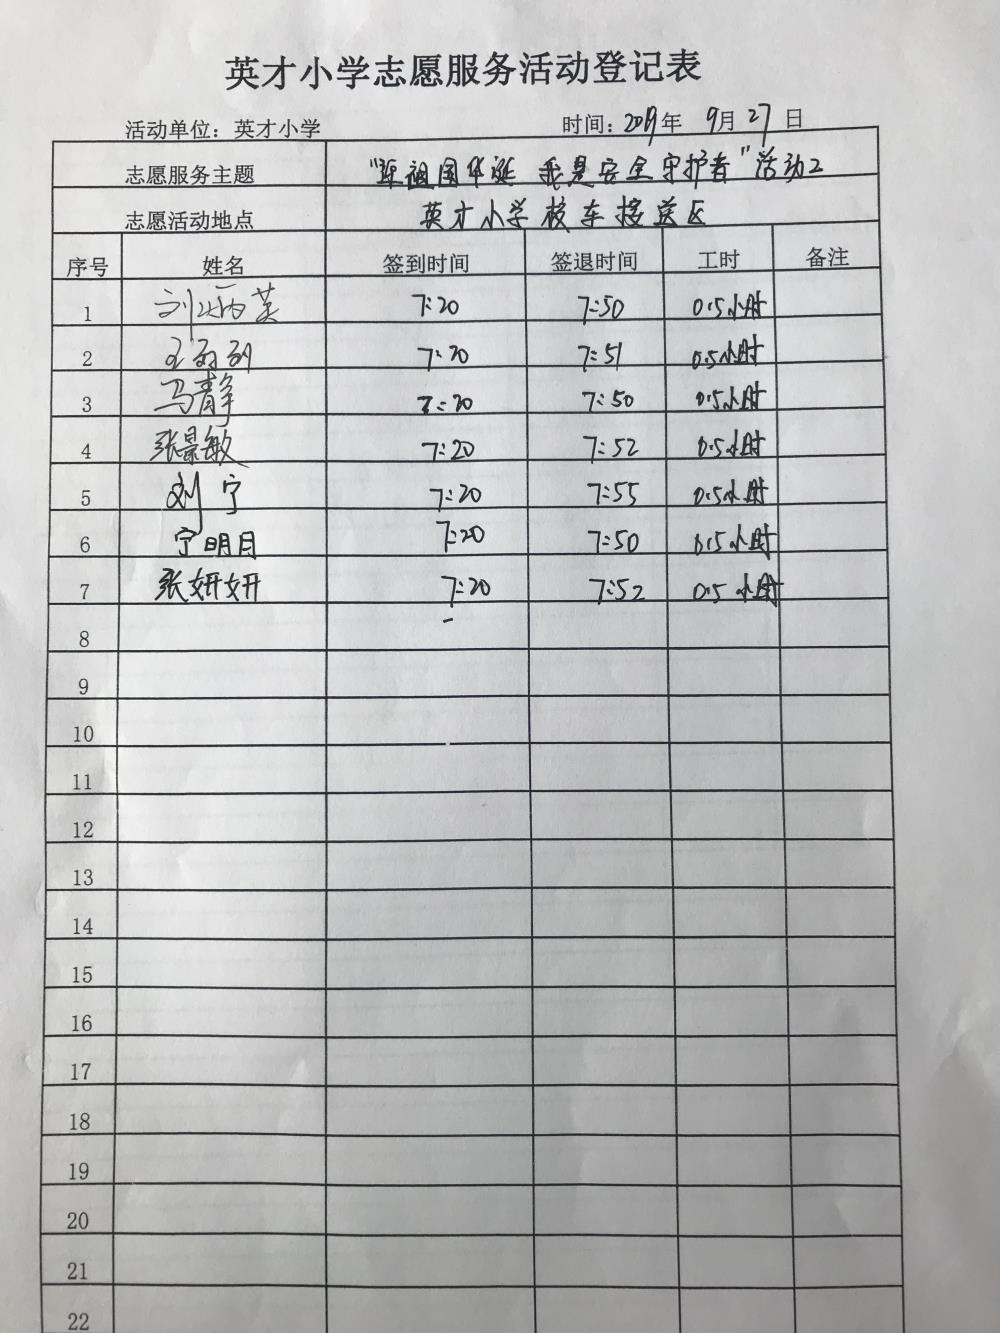 英才小学志愿服务活动登记表
活动单位：英才小学 时间：2019年 9月27日
志愿服务主题 "迎祖国华诞 我是安全守护者"活动2
志愿活动地点 英才小学校车接送区
序号 姓名 签到时间 签退时间 工时 备注
1 刘炳英 7:20 7:50 0.5小时
2 7:20 7:51 0.5小时
3 马静 7:20 7:50 0.5小时
4 张景敏 7:20 7:52 0.5小时
5 刘宁 7:20 7:55 0.5小时
6 宁明月 7:20 7:50 0.5小时
7 张妍妍 7:20 7:52 0.5小时
8
9
10
11
12
13
14
15
16
17
18
19
20
21
22